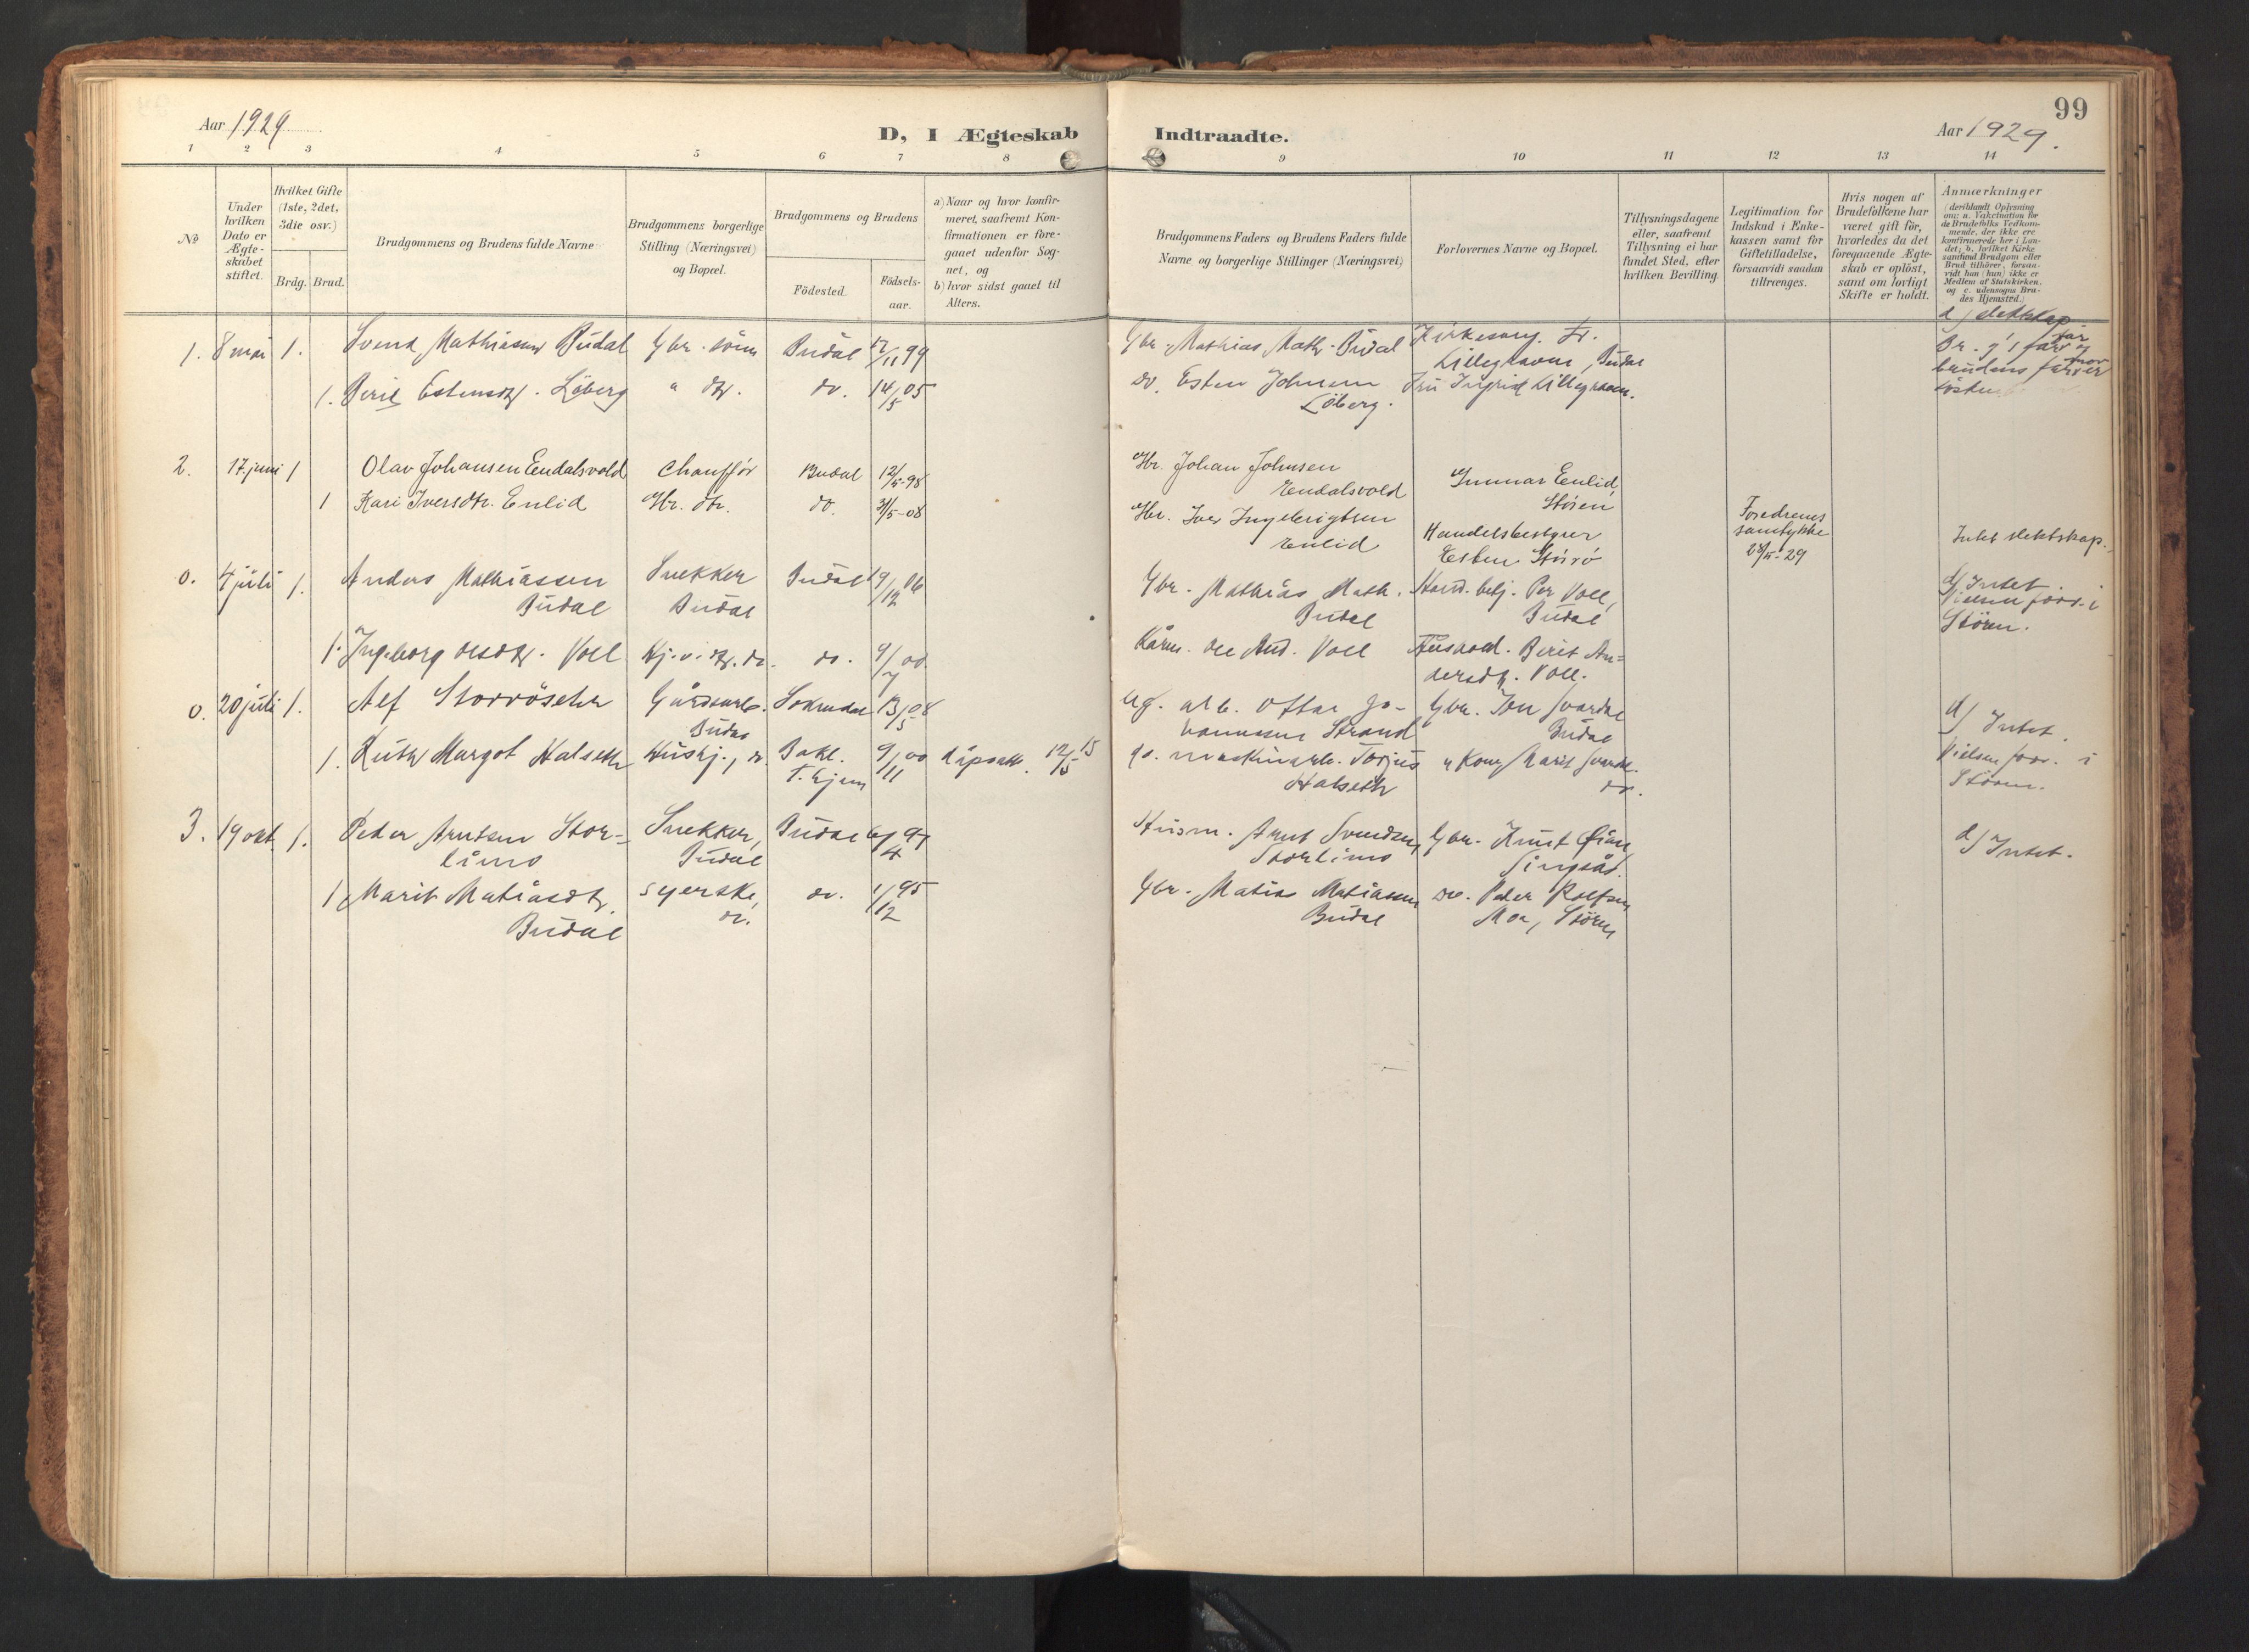 99
Aar 1929
D, I Ægteskab Indtraadte.
Aar 1929.
1 2 3 4 5 6 7 8 9 10 11 12 13 14
№
Under hvilken Dato er Ægte-skabet stiftet.
Hvilket Gifte (1ste, 2det, 3die osv.)
Brdg. Brud.
Brudgommens og Brudens fulde Navne
Brudgommens borgerlige Stilling (Næringsvei) og Bopæl.
Brudgommens og Brudens
Födested.
Födsels-aar.
a) Naar og hvor konfir-
meret, saafremt Kon-
firmationen er fore-
gaaet udenfor Sog-
net, og
b) hvor sidst gaaet til
Alters.
Brudgommens Faders og Brudens Faders fulde
Navne og borgerlige Stillinger (Næringsvei)
Forlovernes Navne og Bopæl.
Tillysningsdagene
eller, saafremt
Tillysning ei har
fundet Sted, efter
hvilken Bevilling.
Legitimation for
Indskud i Enke-
kassen samt for
Giftetilladelse,
forsaavidt saadan
tiltrænges.
Hvis nogen af
Brudefolkene har
været gift för,
hvorledes da det
foregaaende Ægte-
skab er oplöst,
samt om lovligt
Skifte er holdt.
Anmærkninger
(deriblandt Oplysning
om: a. Vakcination for
de Brudefolks Vedkom-
mende, der ikke ere
konfirmerede her i Lan-
det; b. hvilket Kirke-
samfund Brudgom eller
Brud tilhörer, forsaa-
vidt han (hun) ikke er
Medlem af Statskirken,
og c. udensogns Bru-
des Hjemsted.)
1. 8 mai 1. Svend Mathiasen Budal Gbr. sönn Budal 12/11 99 Gbr. Mathias Math. Budal Kirkesang.
Lillegraven, Budal
d) slektskap
brudens
1. Berit Estensdtr. Löberg " dtr. do. 14/5 05 do. Esten Johnsen Fru Ingrid Lillegraven.
Löberg.
2. 17. juni 1 Olav Johansen Endalsvold Chauffør Budal 12/5-98 Gbr. Johan Johnsen
Endalsvold
Gunnar Enlid,
Støren
1 Kari Iversdtr. Enlid Gbr. dtr. do. 31/5-08 Gbr. Iver Ingebrigtsen
Enlid
Handelsbestyrer
Esten Storrø
Foreldrenes
samtykke
28/5-29
Intet slektskap.
0. 4 juli 1. Anders Mathiassen Snekker Budal 19/12 06 Gbr. Mathias Math. Hand. betj. Per Voll,
Budal Budal Budal Budal
d) Intet.
Vielsen forr. i
Stören.
1. Ingeborg Olsdtr. Voll do. 9/7 00 Kårm. Ole And. Voll Berit An-
dersdtr. Voll.
0. 20 juli 1. Alf Storröseth Gårdsarb. Soknedal 13/5 08 arb. Jo-
Budal
hannessen Strand
Gbr. Jon
Budal
d) Intet.
1. Ruth Margot Halseth Hushj., do. Bakl. 9/11 00 12/5 15 Torjus
T.hjem
Halseth
Marit
do.
Vielsen forr. i
Stören.
3. 19 okt. 1. Peder Arntsen Stor- Snekker, Budal 6/4 97 Husm. Arnt Svendsen Gbr. Knut
limo Budal Storlimo Singsås.
d) Intet.
1 Marit Matiasdtr. syerske, do. 1/12 95 Gbr. Matias Matiassen do. Peder Rolfsen
Budal do. Budal Moe, Stören